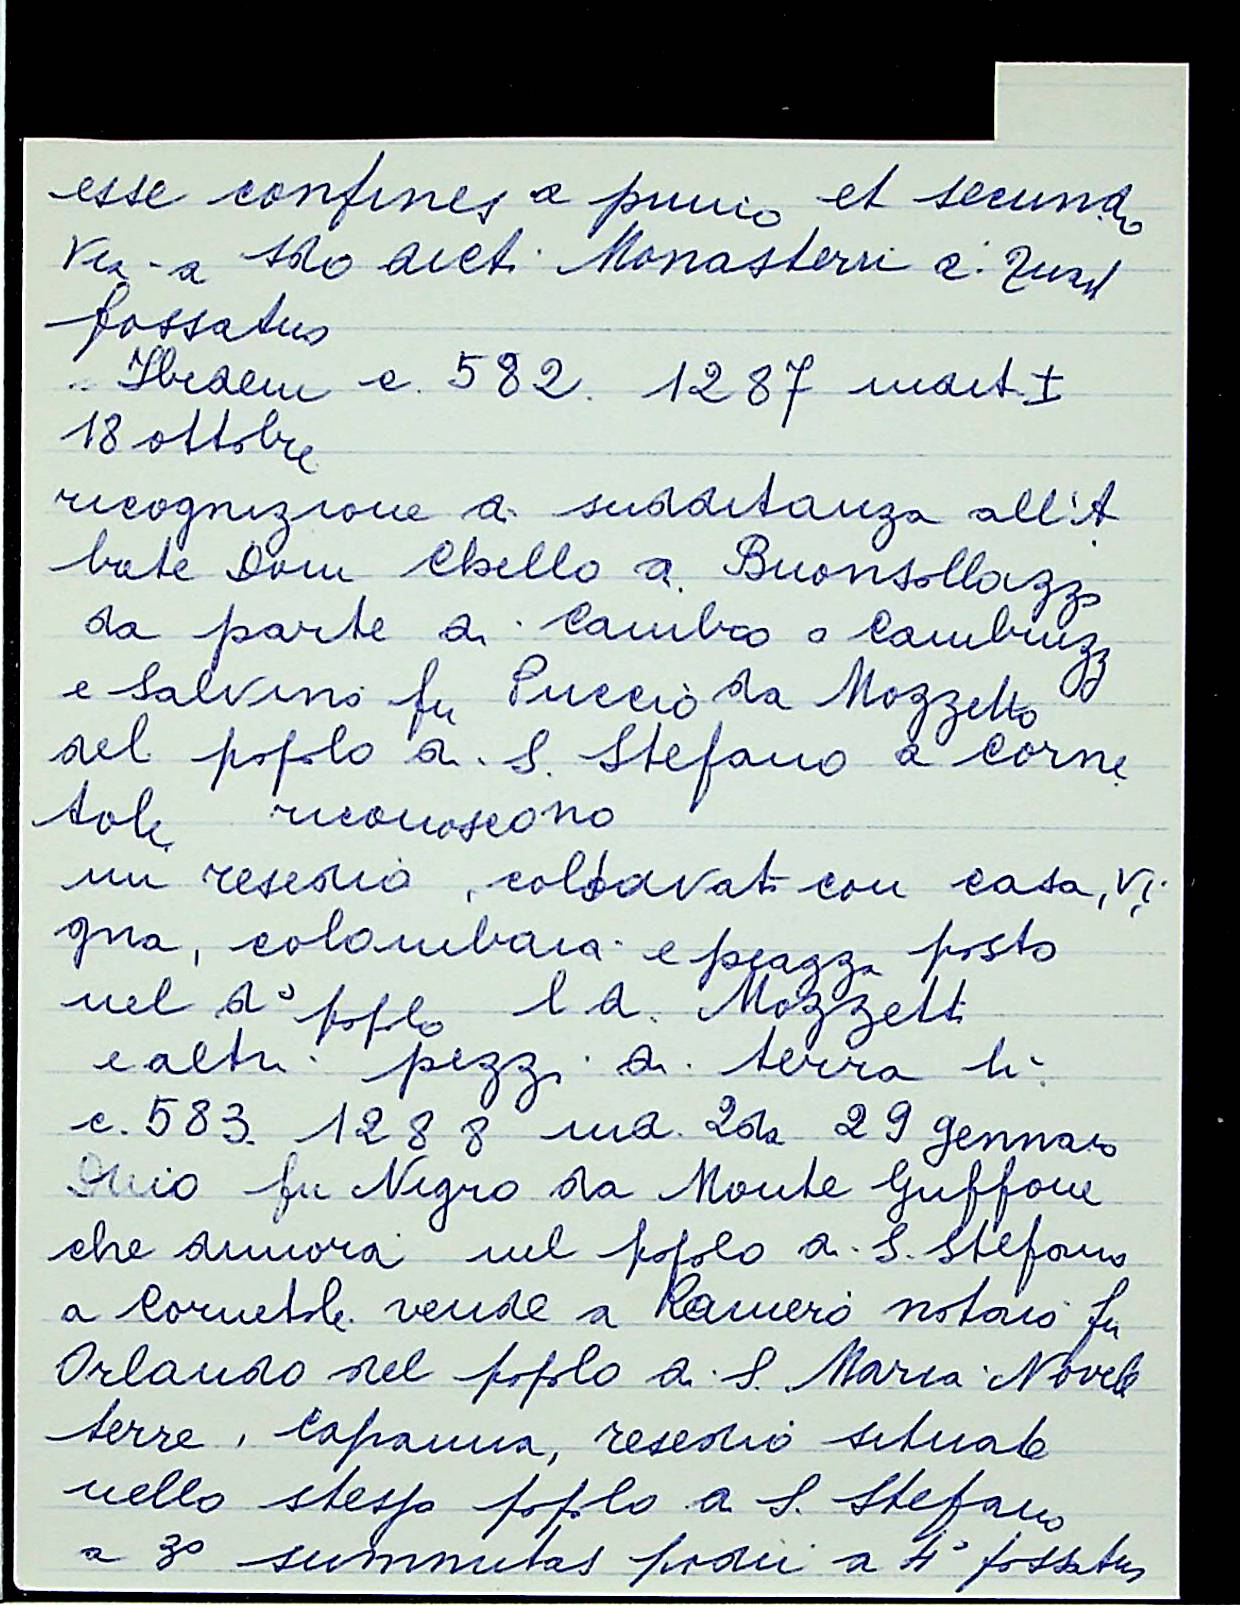 esse confines a primo et secundo
via - a 3zo dicti Monasterii a quart
fossatus
Ibidem c. 582. 1287 indict. I
18 ottobre
ricognizione di sudditanza all'A
bate Dom Chello di Buonsollazzo
da parte di Cambio o Cambiuzz
e Salvino fu Puccio da Mozzetto
del popolo di S. Stefano a Corne
tole riconoscono
un resedio, coltivati con casa, vi
gna, colombaia e piazza posto
nel do popolo l. d. Mozzetti
e altri pezzi di terra lì
c. 583. 1288 ind. 2da 29 gennaio
fu Nigro da Monte Guffone
che dimora nel popolo di S. Stefano
a Cornetole vende a Ranieri notaio fu
Orlando del popolo di S. Maria Novella
terre, capanna, resedio situate
nello stesso popolo di S. Stefano
a 3o summitas podii a 4o fossatus